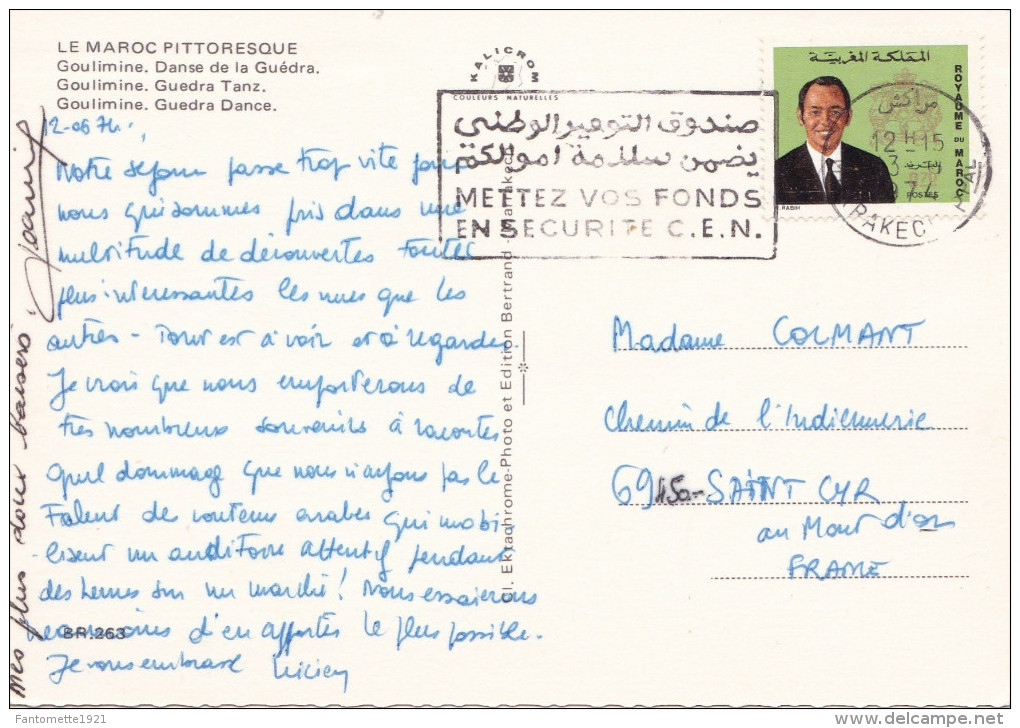 LE MAROC PITTORESQUE
Goulimine. Danse de la Guédra.
Goulimine. Guedra Tanz.
Goulimine. Guedra Dance.
KALICROM
COULEURS NATURELLES
صندوق التوفير الوطني
يضمن سلامة اموالكم
METTEZ VOS FONDS
EN SECURITE C.E.N.
المملكة المغربية
ROYAUME DU MAROC
POSTES
RABIH
مراكش
12 H 15
Notre séjour passe trop vite pour
nous qui sommes pris dans une
multitude de découvertes toutes
plus intéressantes les unes que les
autres - Tout est à voir et à regarder.
Je crois que nous emporterons de
très nombreux souvenirs à raconter
Quel dommage que nous n'ayons pas le
talent des conteurs arabes qui mobi
-lisent un auditoire attentif pendant
des heures sur un marché! Nous essaierons
néanmoins d'en apporter le plus possible.
Je vous embrasse Lucien
Mes plus doux baisers.
BR.263
Cl. Ektachrome-Photo et Edition Bertrand -
Madame COLMANT
Chemin de l'Indiennerie
69450 - SAINT CYR
au Mont d'or
FRANCE
Fantomette1921